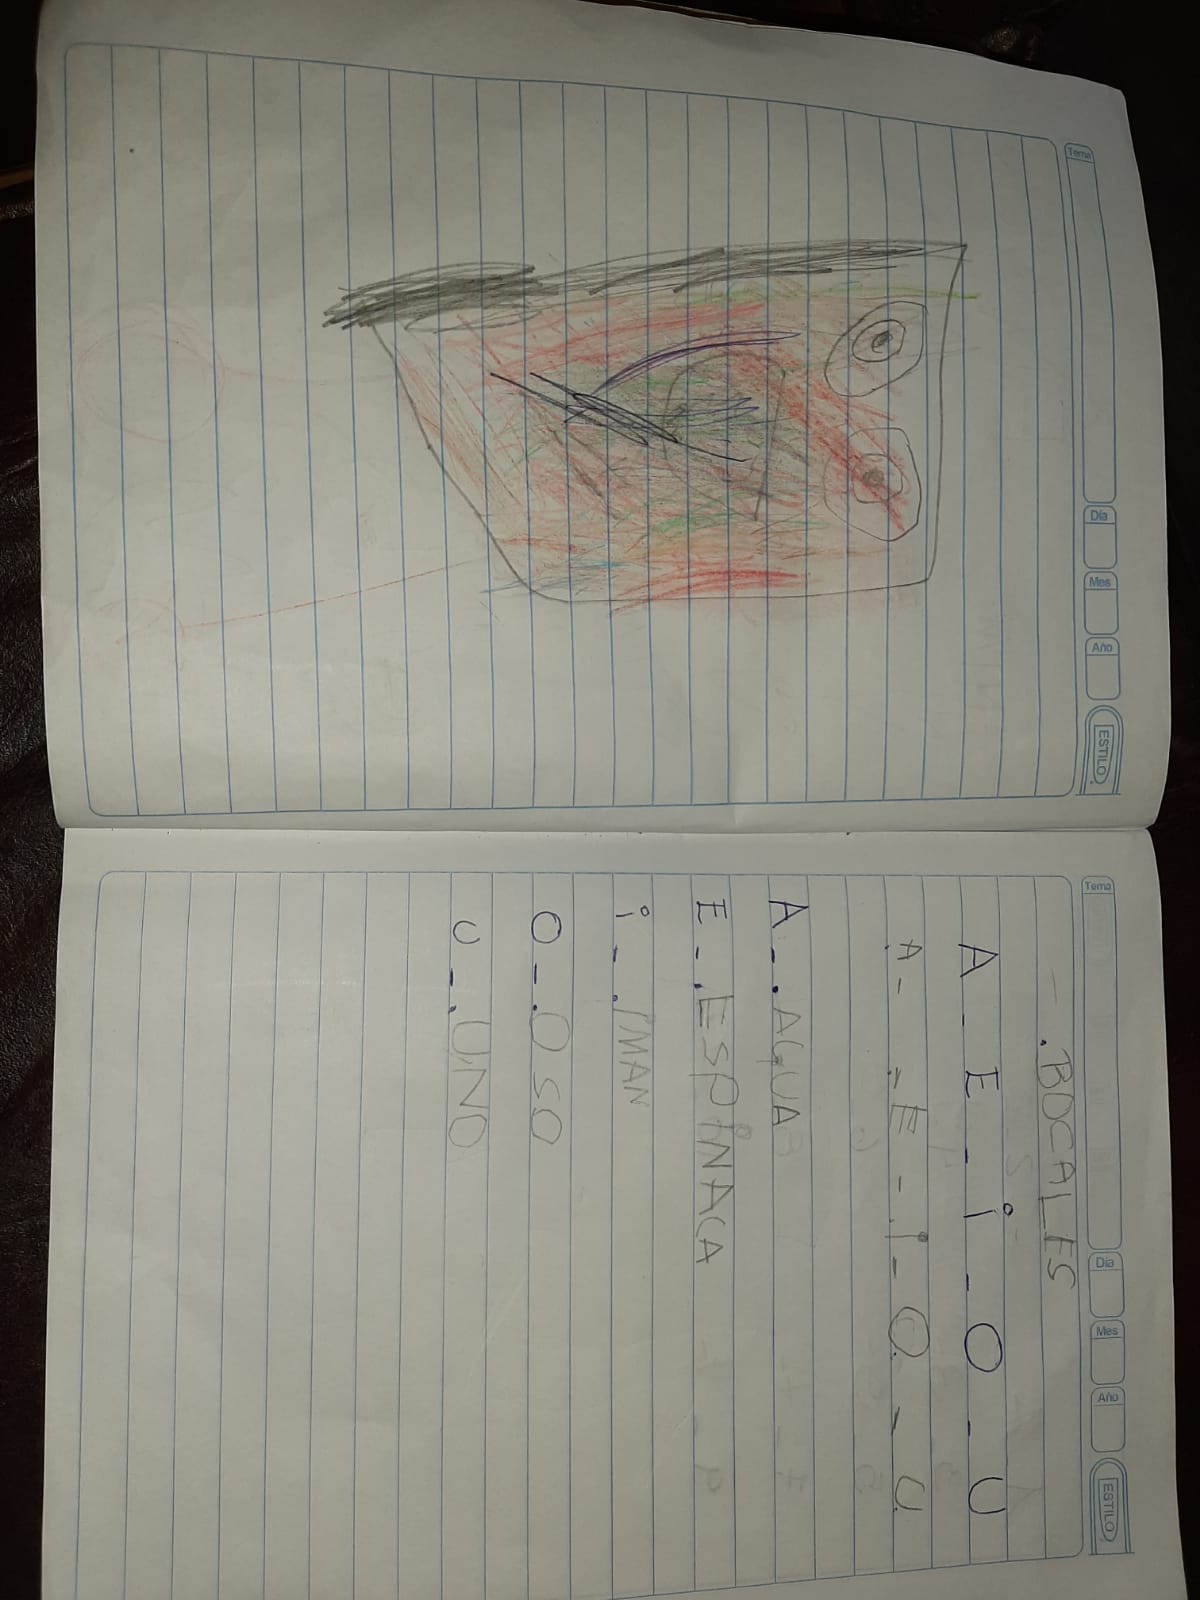 Tema
Día
Mes
Año
ESTILO
Tema
Día
Mes
Año
ESTILO
- .BOCALES
A - E - i - O - U
A - - E - i - O. - U.
A - - .AGUA
E - . ESPiNACA
i - - . iMAN
O - - . OSO
U - - . UNO